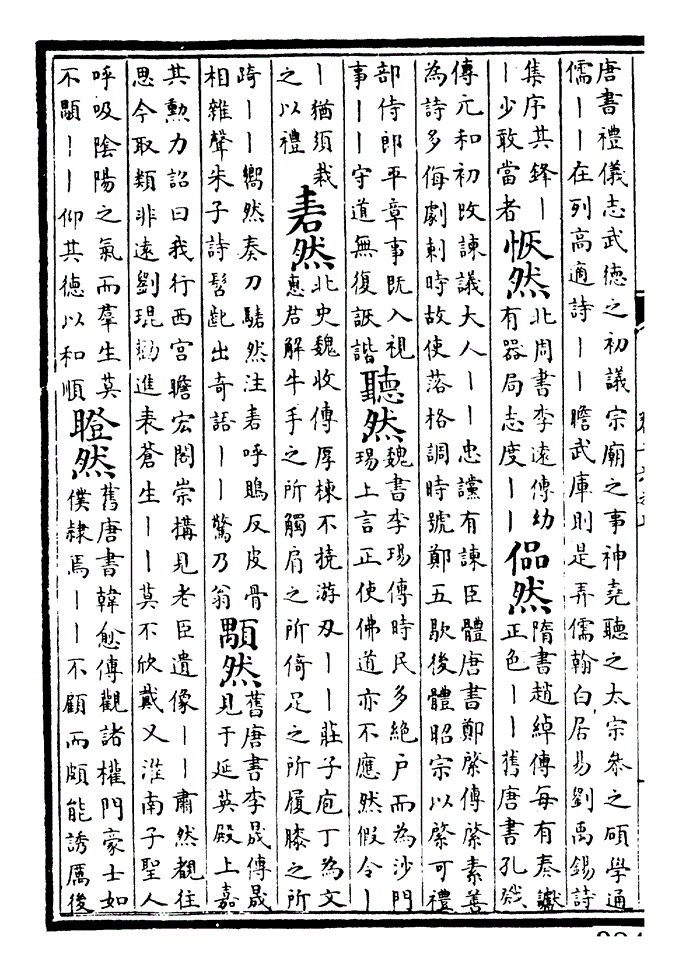 唐書禮儀志武德之初議宗廟之事神堯聽之太宗叅之碩學通
儒丨丨在列高適詩丨丨瞻武庫則是弄儒翰白居易劉禹錫詩
集序其鋒丨
丨少敢當者
恢然
北周書李遠傳幼
有器局志度丨丨
偘然
隋書趙綽傳每有奏讞
正色丨丨舊唐書孔戣
傳元和初改諫議大人丨丨忠讜有諫臣體唐書鄭綮傳綮素善
為詩多侮劇刺時故使落格調時號鄭五歇後體昭宗以綮可禮
部侍郎平章事既入視
事丨丨守道無復詼諧
聽然
魏書李瑒傳時民多絶户而為沙門
瑒上言正使佛道亦不應然假令丨
丨猶須裁
之以禮
砉然
北史魏收傳厚棟不撓游刃丨丨莊子庖丁為文
惠君解牛手之所觸肩之所倚足之所履膝之所
踦丨丨嚮然奏刀騞然注砉呼鵙反皮骨
相雜聲朱子詩髫齔出奇語丨丨驚乃翁
顒然
舊唐書李晟傳晟
見于延英殿上嘉
其勲力詔曰我行西宫瞻宏閣崇構見老臣遺像丨丨肅然覩往
思今取類非遠劉琨勸進表蒼生丨丨莫不欣戴又淮南子聖人
呼吸陰陽之氣而羣生莫
不顒丨丨仰其德以和順
瞪然
舊唐書韓愈傳觀諸權門豪士如
僕隸焉丨丨不顧而頗能誘厲後